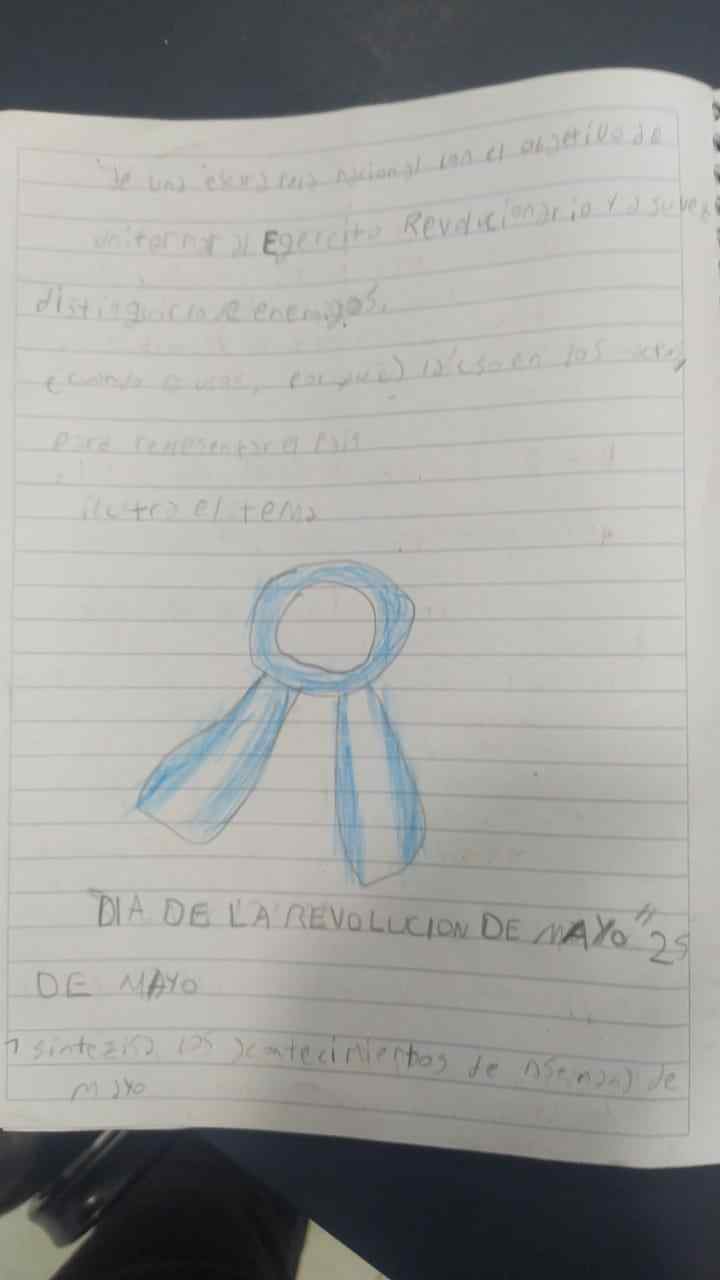 de una escarapela nacional con el objetivo de
uniformar al Egercito Revolucionario y a su vez
distinguirlo de enemigos.
en los
para representar el país
ilustra el tema
DIA DE LA REVOLUCION DE MAYO "25
DE MAYO
1 sinteziza los acontecimientos de de
mayo